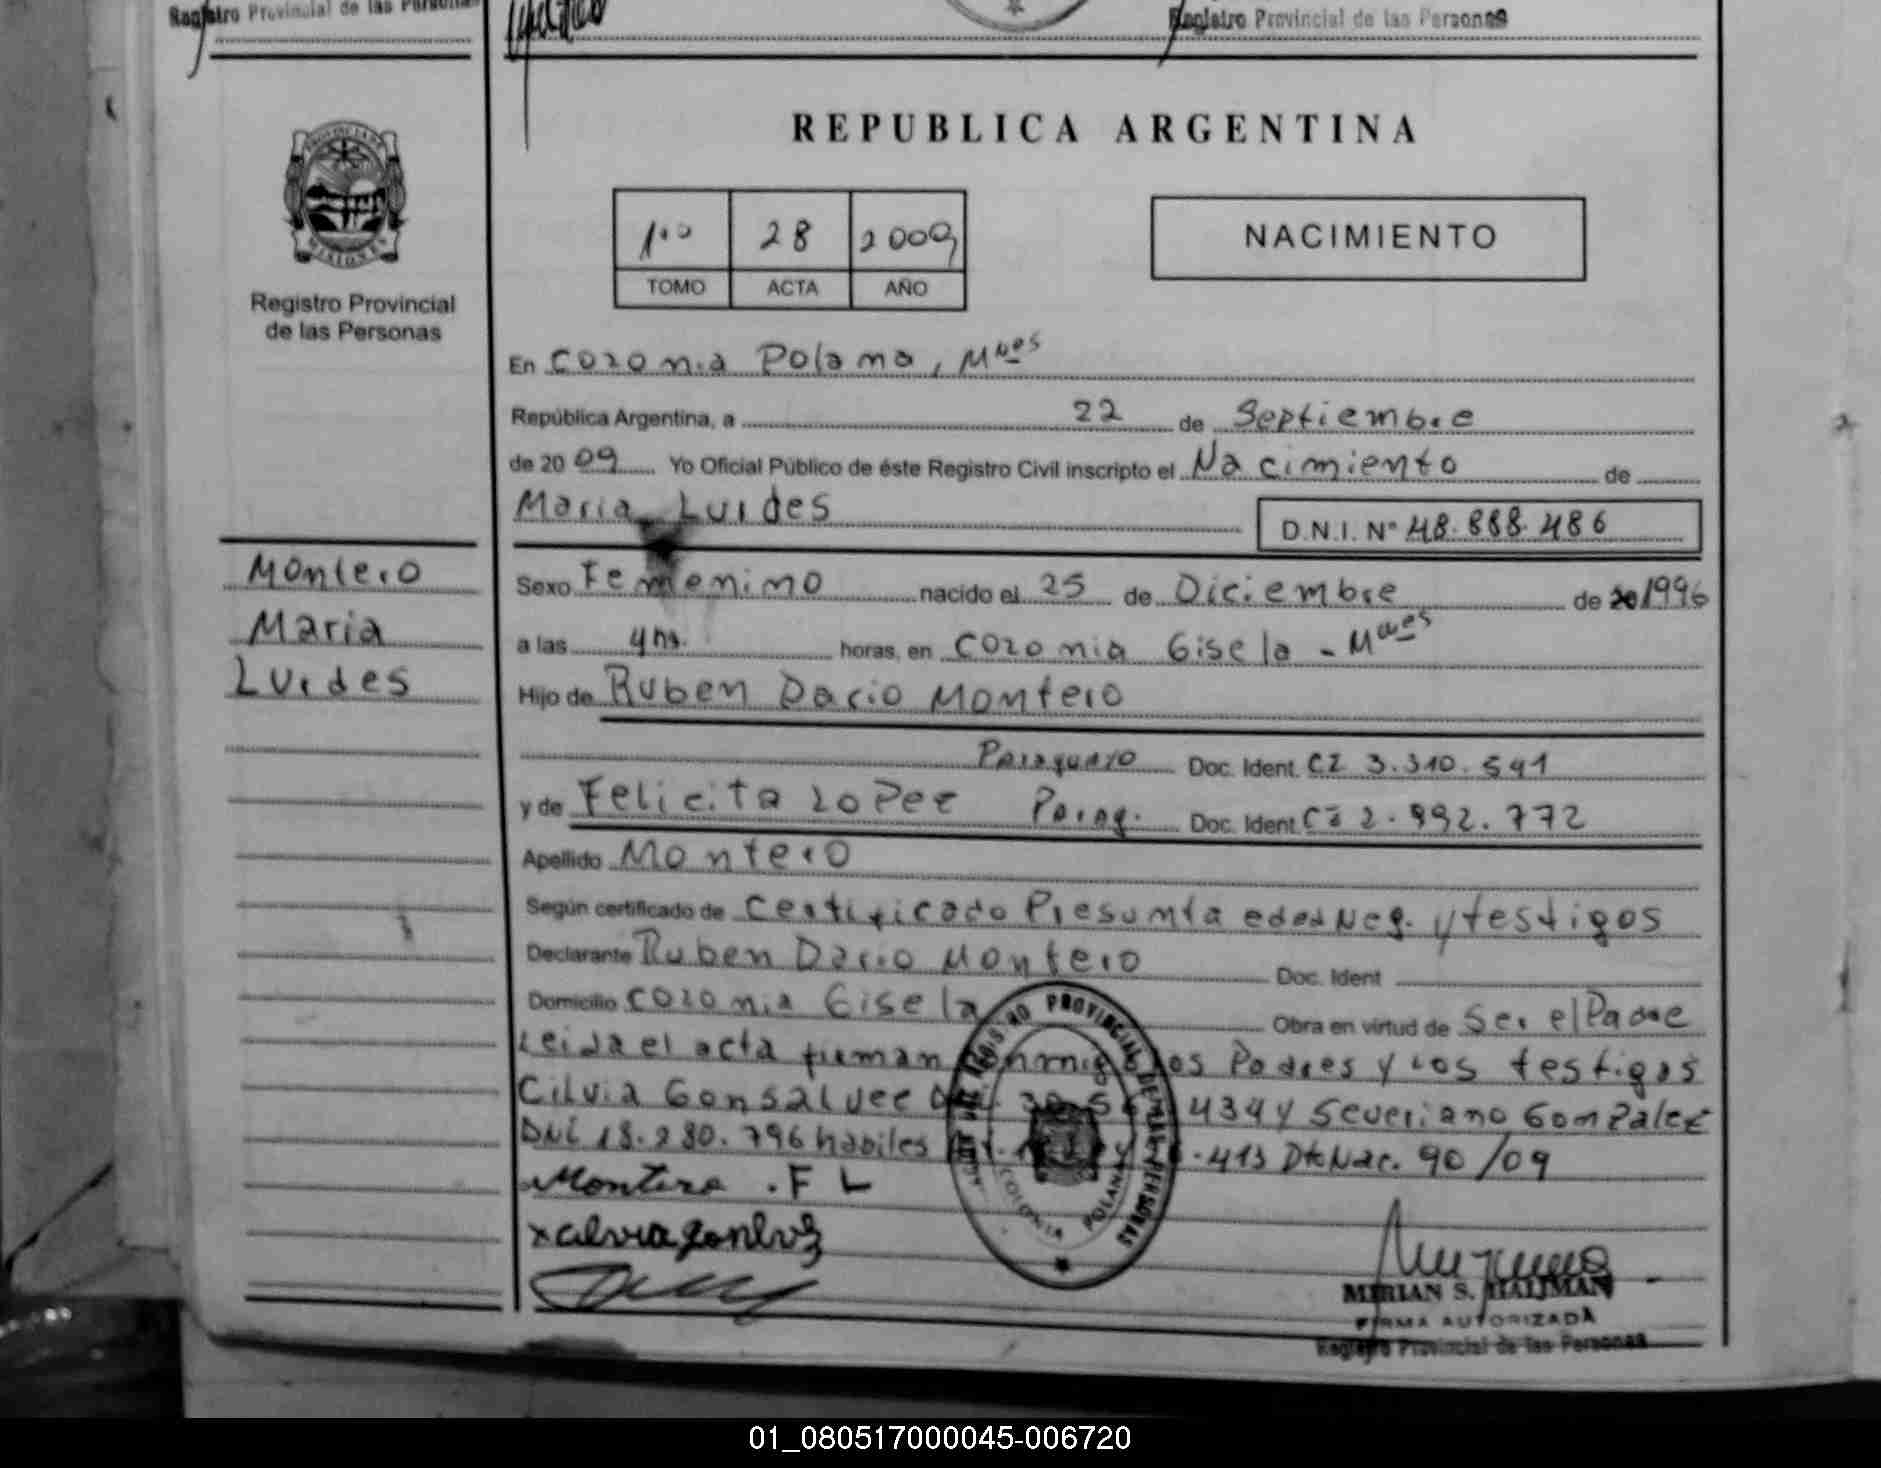 Registro Provincial de las Personas
Registro Provincial de las Personas
REPUBLICA ARGENTINA
1°° 28 2009
TOMO ACTA AÑO
NACIMIENTO
Registro Provincial
de las Personas
En Colonia Polana, Mnes
República Argentina, a 22 de Septiembre
de 20 09 Yo Oficial Público de éste Registro Civil inscripto el Nacimiento de
Maria Lurdes
D.N.I. N° 48.888.486
Montero
Maria
Lurdes
Sexo Femenino nacido el 25 de Diciembre de 20 1996
a las 4 hs. horas, en Colonia Gisela - Mnes
Hijo de Ruben Dario Montero
Paraguayo Doc. Ident. CI 3.310.541
y de Felicita Lopez Parag. Doc. Ident. CI 2.992.772
Apellido Montero
Según certificado de Certificado Presunta edad Neg. y testigos
Declarante Ruben Dario Montero Doc. Ident
Domicilio Colonia Gisela Obra en virtud de Ser el Padre
Leida el acta firman conmigo los Padres y los testigos
Cilvia Gonsalvez 434 y Severiano Gonzalez
DNI 18.280.796 habiles 413 Dto Nac. 90/09
Montero . F L
REGISTRO PROVINCIAL DE LAS PERSONAS
COLONIA POLANA
MIRIAN S. HALIMAN
FIRMA AUTORIZADA
Registro Provincial de las Personas
01_080517000045-006720